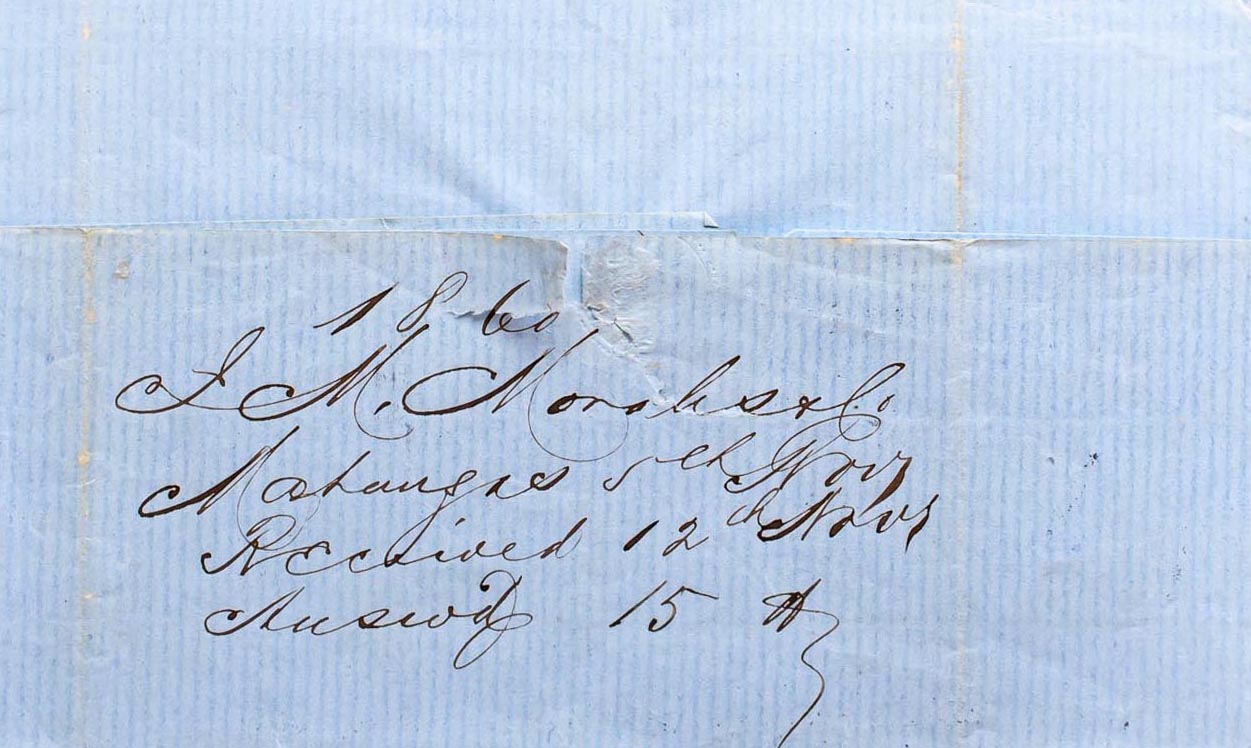 1860
J M. Morales & Co
Matanzas 5th Novr
Received 12th Novr
Answd 15